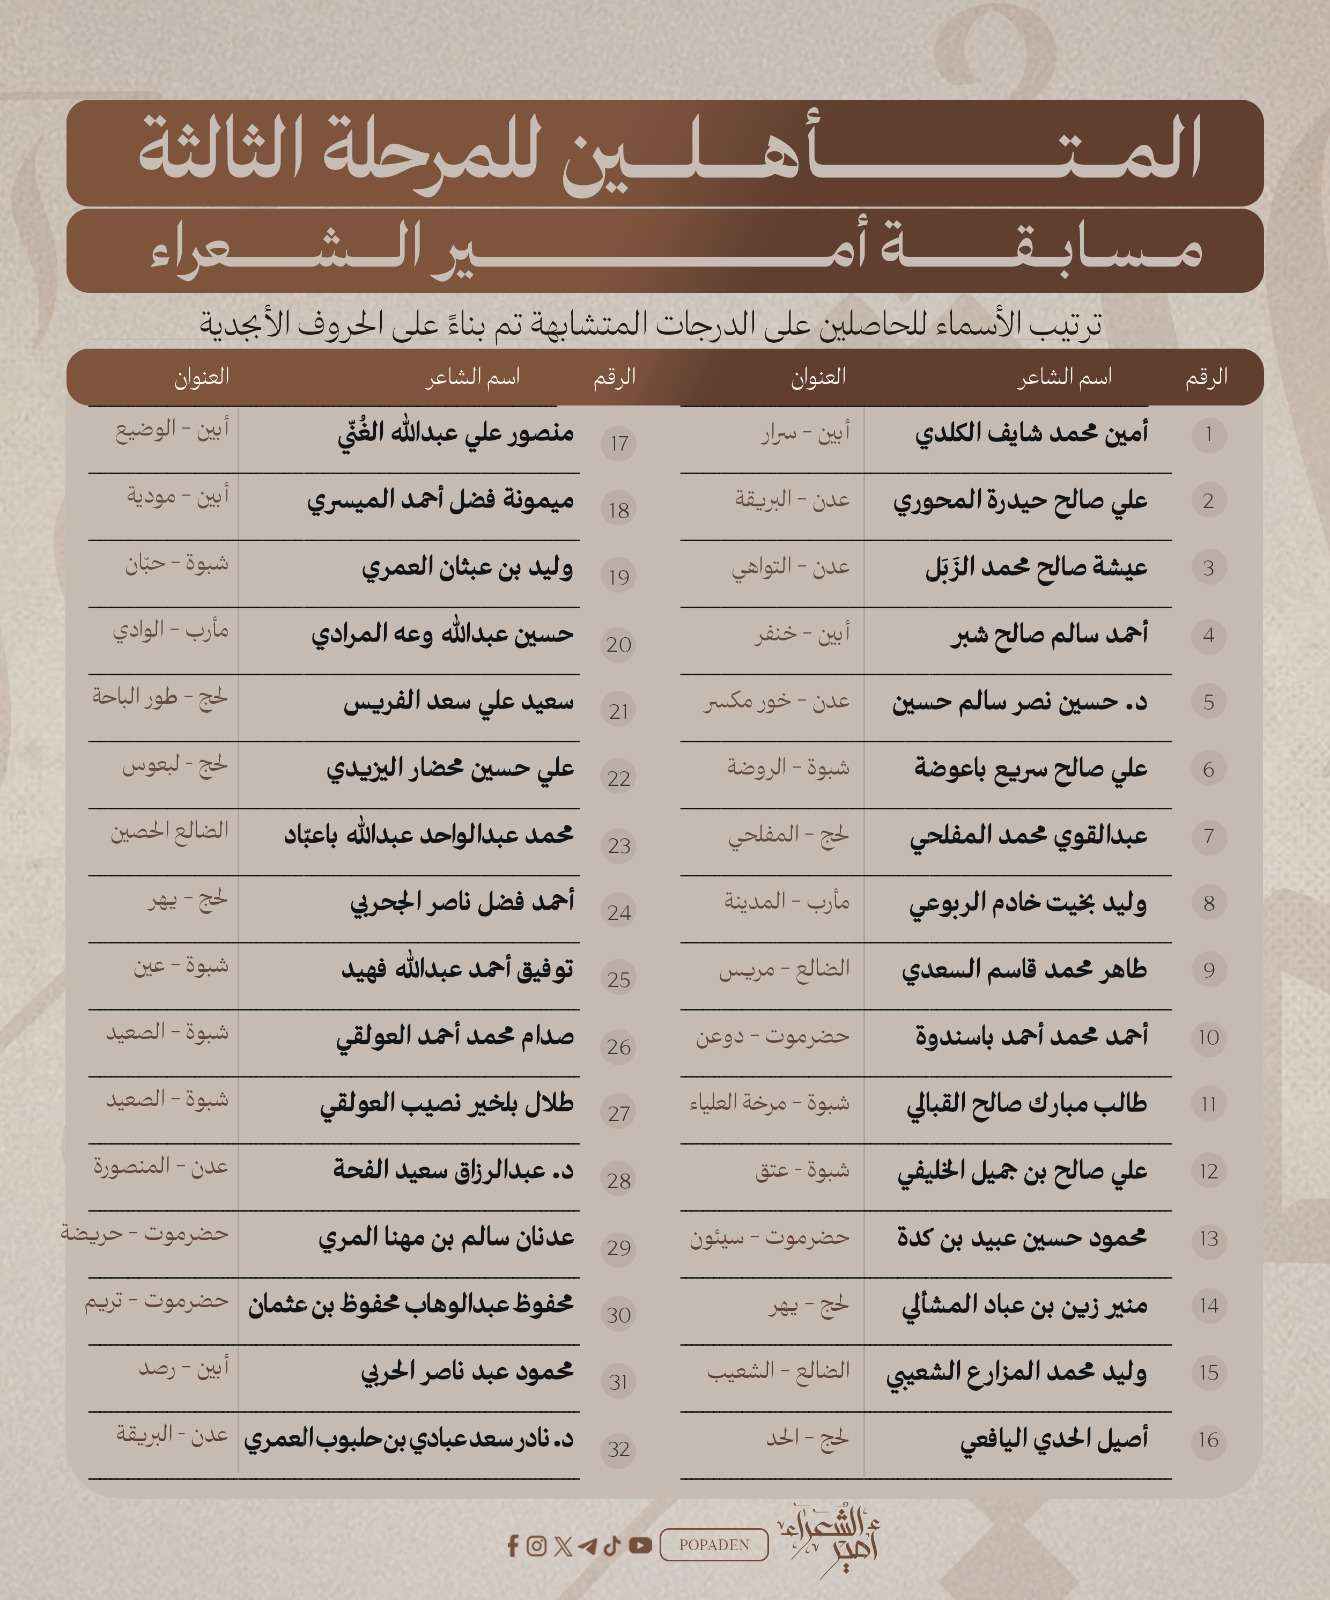 المتأهلين للمرحلة الثالثة
مسابقة أمير الشعراء
ترتيب الأسماء للحاصلين على الدرجات المتشابهة تم بناءً على الحروف الأبجدية
الرقم اسم الشاعر العنوان
1 أمين محمد شايف الكلدي أبين - سرار
2 علي صالح حيدرة المحوري عدن - البريقة
3 عيشة صالح محمد الزَبَل عدن - التواهي
4 أحمد سالم صالح شبر أبين - خنفر
5 د. حسين نصر سالم حسين عدن - خور مكسر
6 علي صالح سريع باعوضة شبوة - الروضة
7 عبدالقوي محمد المفلحي لحج - المفلحي
8 وليد بخيت خادم الربوعي مأرب - المدينة
9 طاهر محمد قاسم السعدي الضالع - مريس
10 أحمد محمد أحمد باسندوة حضرموت - دوعن
11 طالب مبارك صالح القبالي شبوة - مرخة العلياء
12 علي صالح بن جميل الخليفي شبوة - عتق
13 محمود حسين عبيد بن كدة حضرموت - سيئون
14 منير زين بن عباد المشألي لحج - يهر
15 وليد محمد المزارع الشعيبي الضالع - الشعيب
16 أصيل الحدي اليافعي لحج - الحد
الرقم اسم الشاعر العنوان
17 منصور علي عبدالله الغُنّي أبين - الوضيع
18 ميمونة فضل أحمد الميسري أبين - مودية
19 وليد بن عبثان العمري شبوة - حبّان
20 حسين عبدالله وعه المرادي مأرب - الوادي
21 سعيد علي سعد الفريس لحج - طور الباحة
22 علي حسين محضار اليزيدي لحج - لبعوس
23 محمد عبدالواحد عبدالله باعبّاد الضالع الحصين
24 أحمد فضل ناصر الجحربي لحج - يهر
25 توفيق أحمد عبدالله فهيد شبوة - عين
26 صدام محمد أحمد العولقي شبوة - الصعيد
27 طلال بلخير نصيب العولقي شبوة - الصعيد
28 د. عبدالرزاق سعيد الفحة عدن - المنصورة
29 عدنان سالم بن مهنا المري حضرموت - حريضة
30 محفوظ عبدالوهاب محفوظ بن عثمان حضرموت - تريم
31 محمود عبد ناصر الحربي أبين - رصد
32 د. نادر سعد عبادي بن حلبوب العمري عدن - البريقة
أمير الشعراء
POPADEN